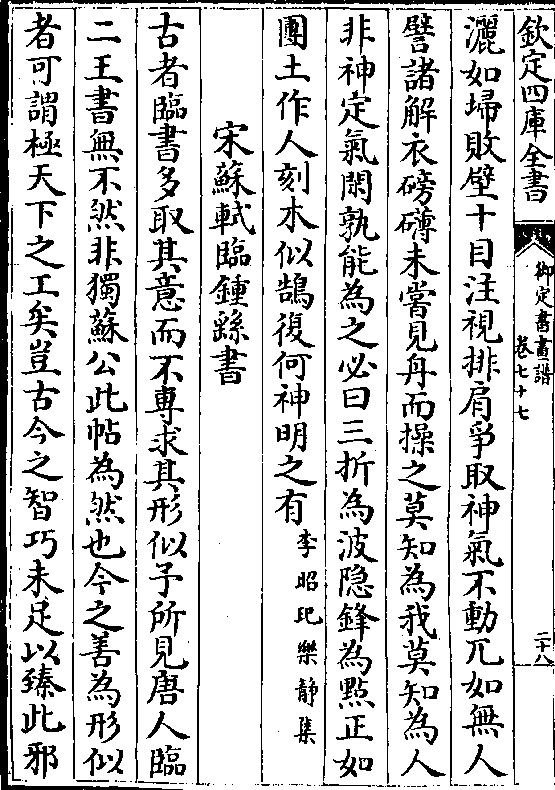 欽定四庫全書
御定書畫譜
卷七十七
二十八
灑如埽敗壁十目注視排肩爭取神氣不動兀如無人
譬諸解衣磅礴未嘗見舟而操之莫知為我莫知為人
非神定氣閑孰能為之必曰三折為波隐鋒為㸃正如
團土作人刻木似鵠復何神明之有李昭玘樂靜集
宋蘇軾臨鍾繇書
古者臨書多取其意而不專求其形似予所見唐人臨
二王書無不然非獨蘇公此帖為然也今之善為形似
者可謂極天下之工矣豈古今之智巧未足以臻此邪